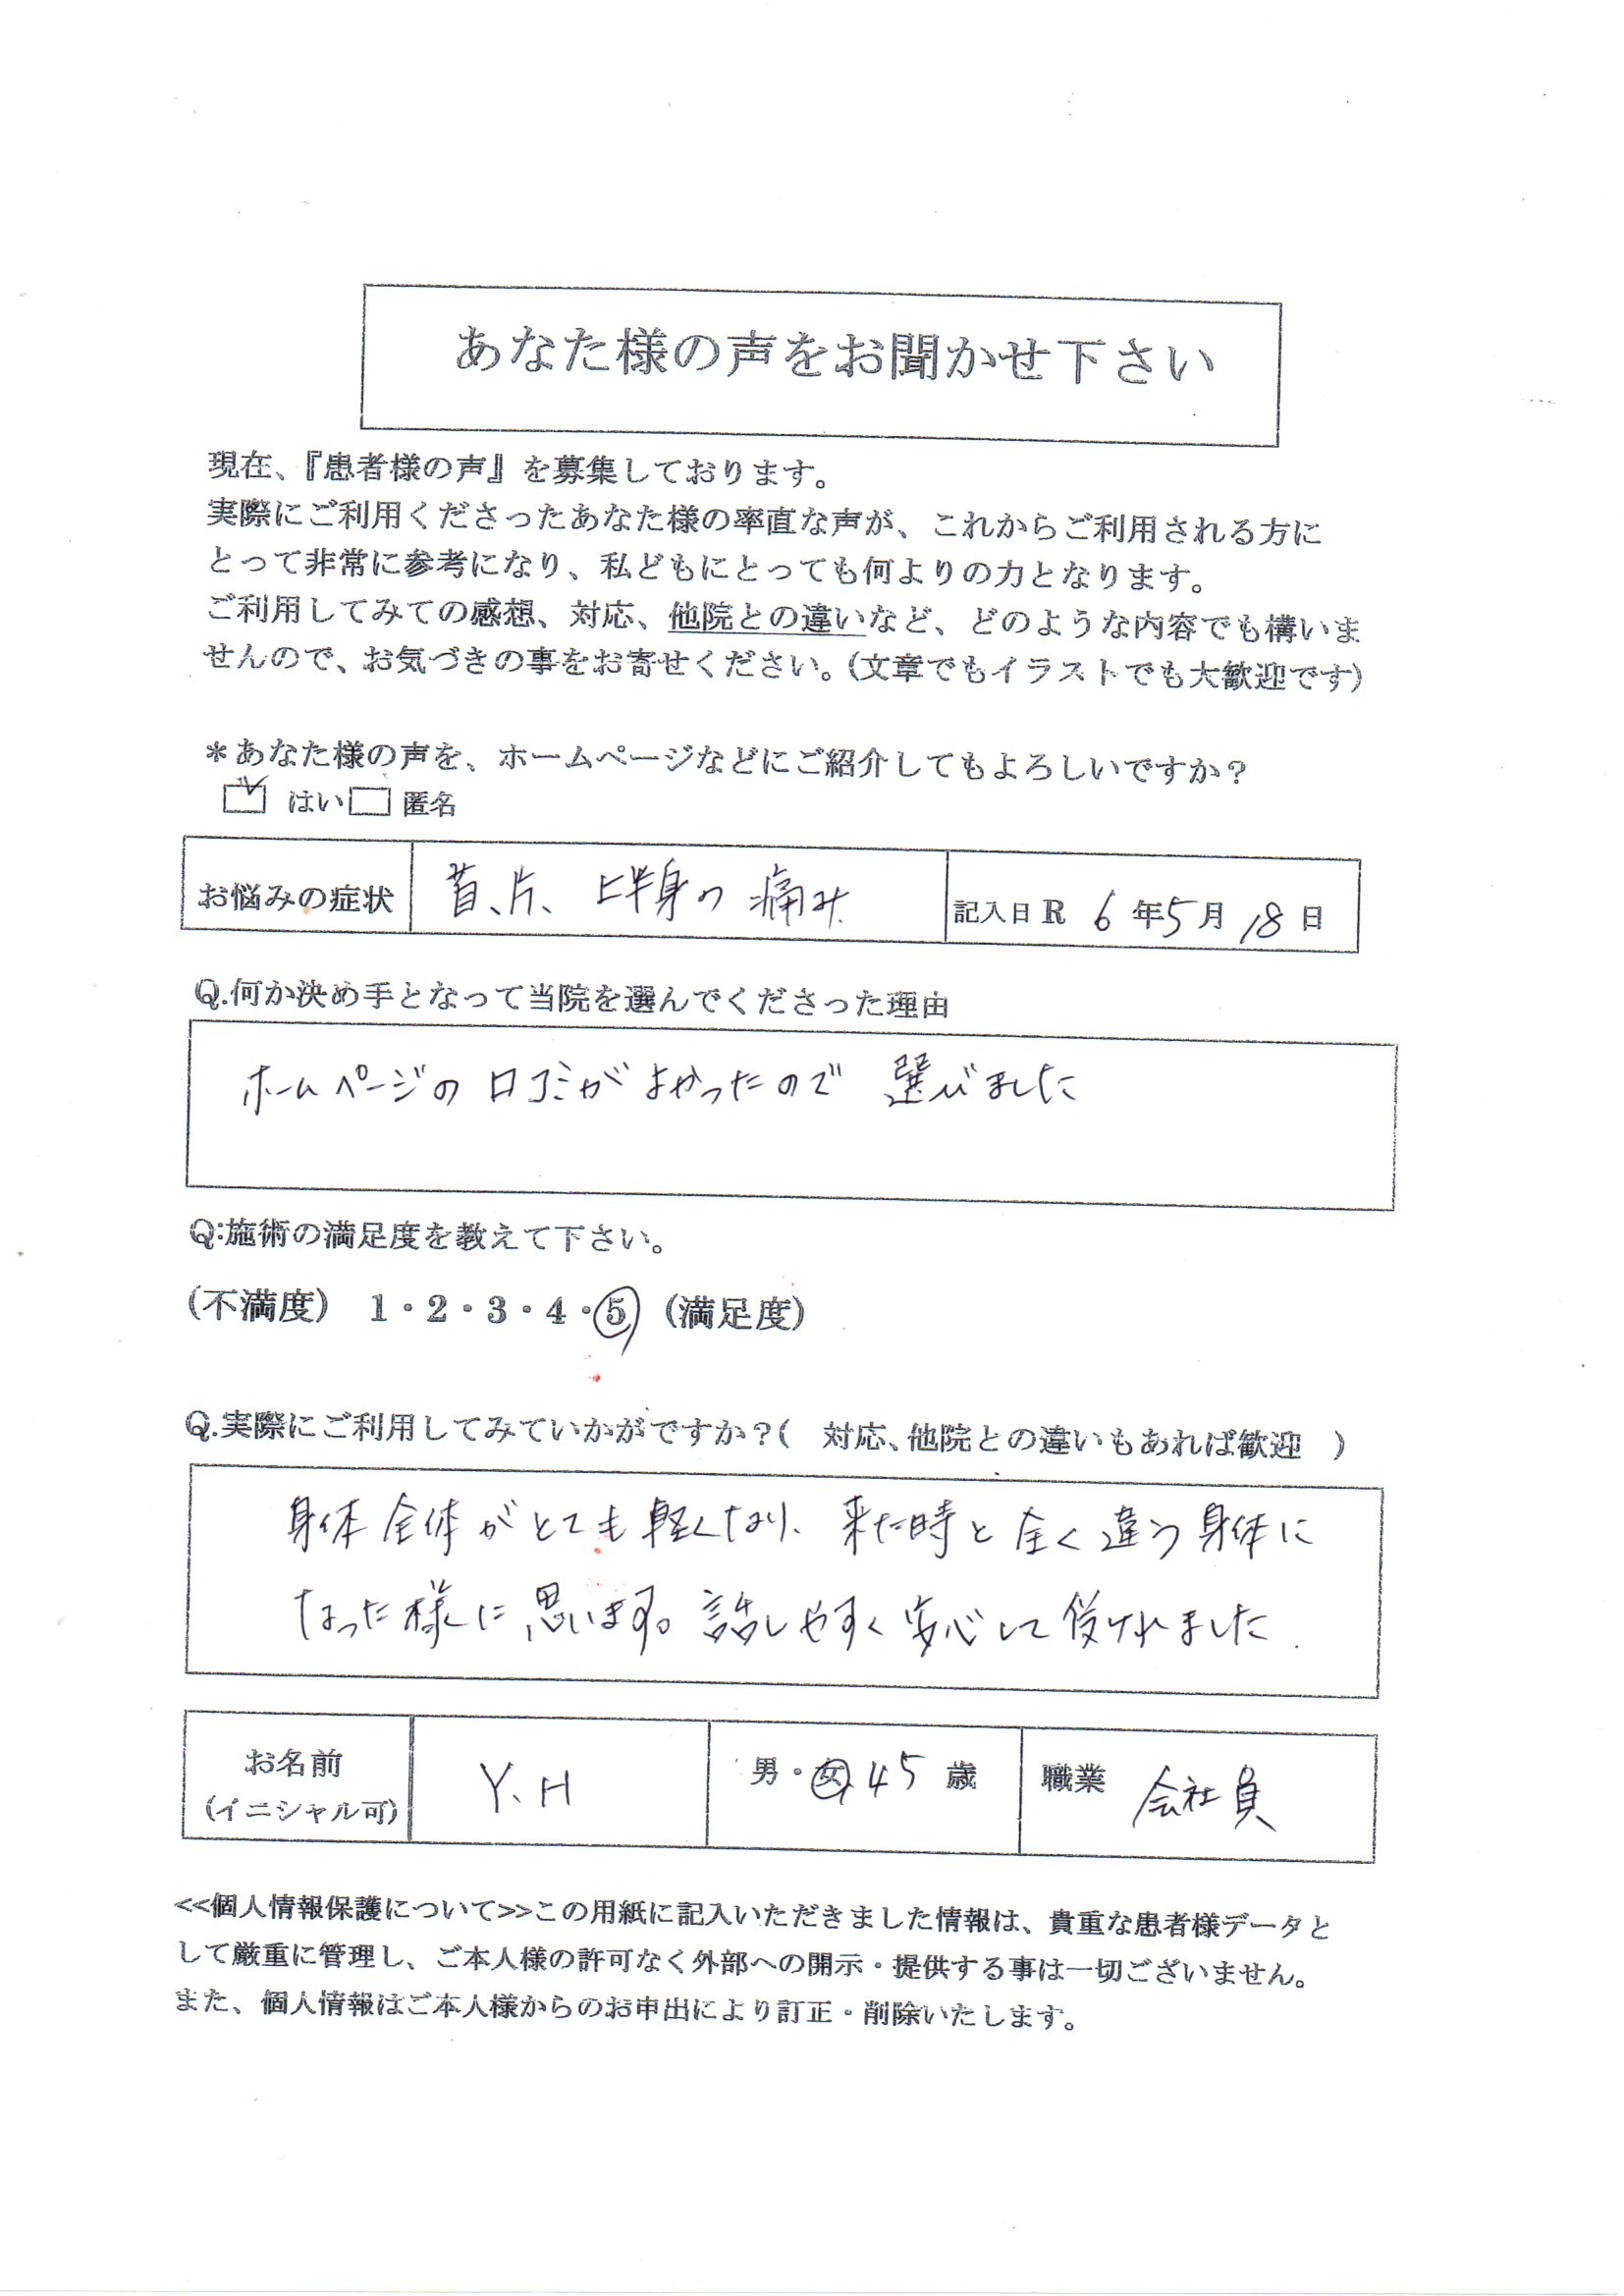 あなた様の声をお聞かせ下さい
現在、『患者様の声』を募集しております。
実際にご利用くださったあなた様の率直な声が、これからご利用される方に
とって非常に参考になり、私どもにとっても何よりの力となります。
ご利用してみての感想、対応、他院との違いなど、どのような内容でも構いま
せんので、お気づきの事をお寄せください。(文章でもイラストでも大歓迎です)
*あなた様の声を、ホームページなどにご紹介してもよろしいですか?
はい 匿名
お悩みの症状 首、片、上半身の痛み 記入日R 6年5月18日
Q.何か決め手となって当院を選んでくださった理由
ホームページの口コミがよかったので 選びました
Q:施術の満足度を教えて下さい。
(不満度) 1・2・3・4・5 (満足度)
Q.実際にご利用してみていかがですか?( 対応、他院との違いもあれば歓迎 )
身体全体がとても軽くなり、来た時と全く違う身体に
なった様に思います。話しやすく安心して受けれました
お名前 Y.H 男・女 45歳 職業 会社員
(イニシャル可)
<<個人情報保護について>>この用紙に記入いただきました情報は、貴重な患者様データと
して厳重に管理し、ご本人様の許可なく外部への開示・提供する事は一切ございません。
また、個人情報はご本人様からのお申出により訂正・削除いたします。